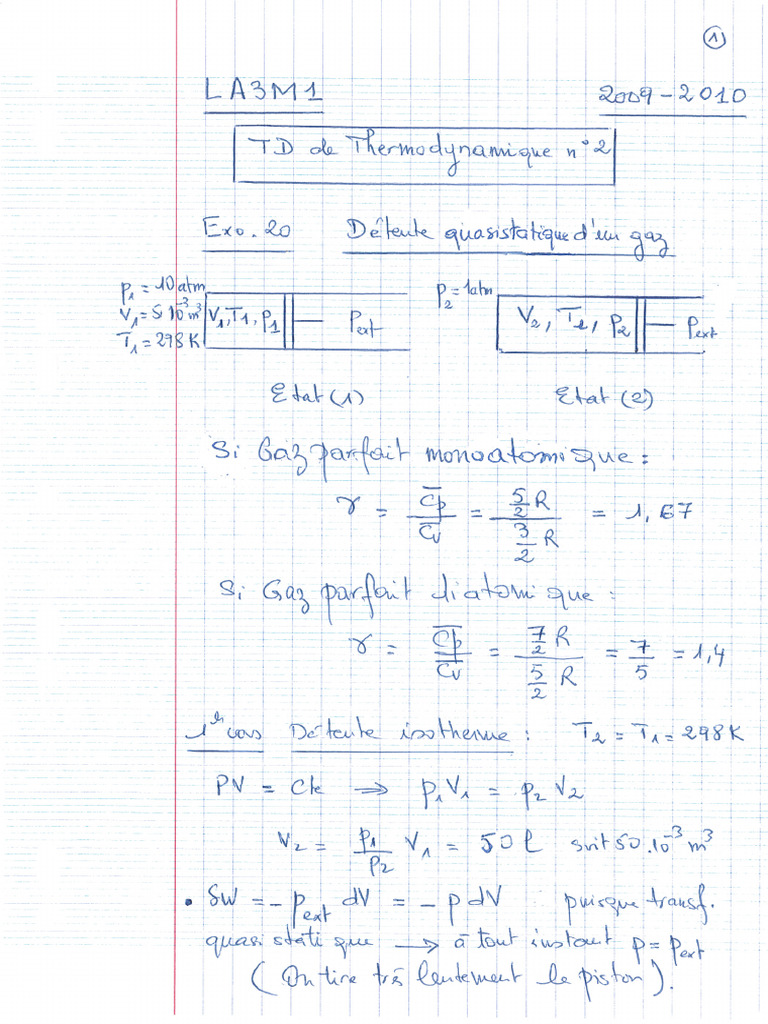 1
LA3M1 2009-2010
TD de Thermodynamique n°2
Exo. 20 Détente quasistatique d'un gaz
p₁ = 10 atm
V₁ = 5 10⁻³ m³
T₁ = 298 K
V₁, T₁, p₁ Pext
p₂ = 1 atm
V₂, T₂, p₂ Pext
Etat (1) Etat (2)
Si Gaz parfait monoatomique :
γ = C̅p / C̅v = (5/2 R) / (3/2 R) = 1,67
Si Gaz parfait diatomique :
γ = C̅p / C̅v = (7/2 R) / (5/2 R) = 7/5 = 1,4
1er cas Détente isotherme : T₂ = T₁ = 298 K
PV = Cte ⟹ p₁V₁ = p₂V₂
V₂ = p₁/p₂ V₁ = 50 l soit 50.10⁻³ m³
• δW = - pext dV = - p dV puisque transf.
quasistatique → à tout instant p = pext
(On tire très lentement le piston).